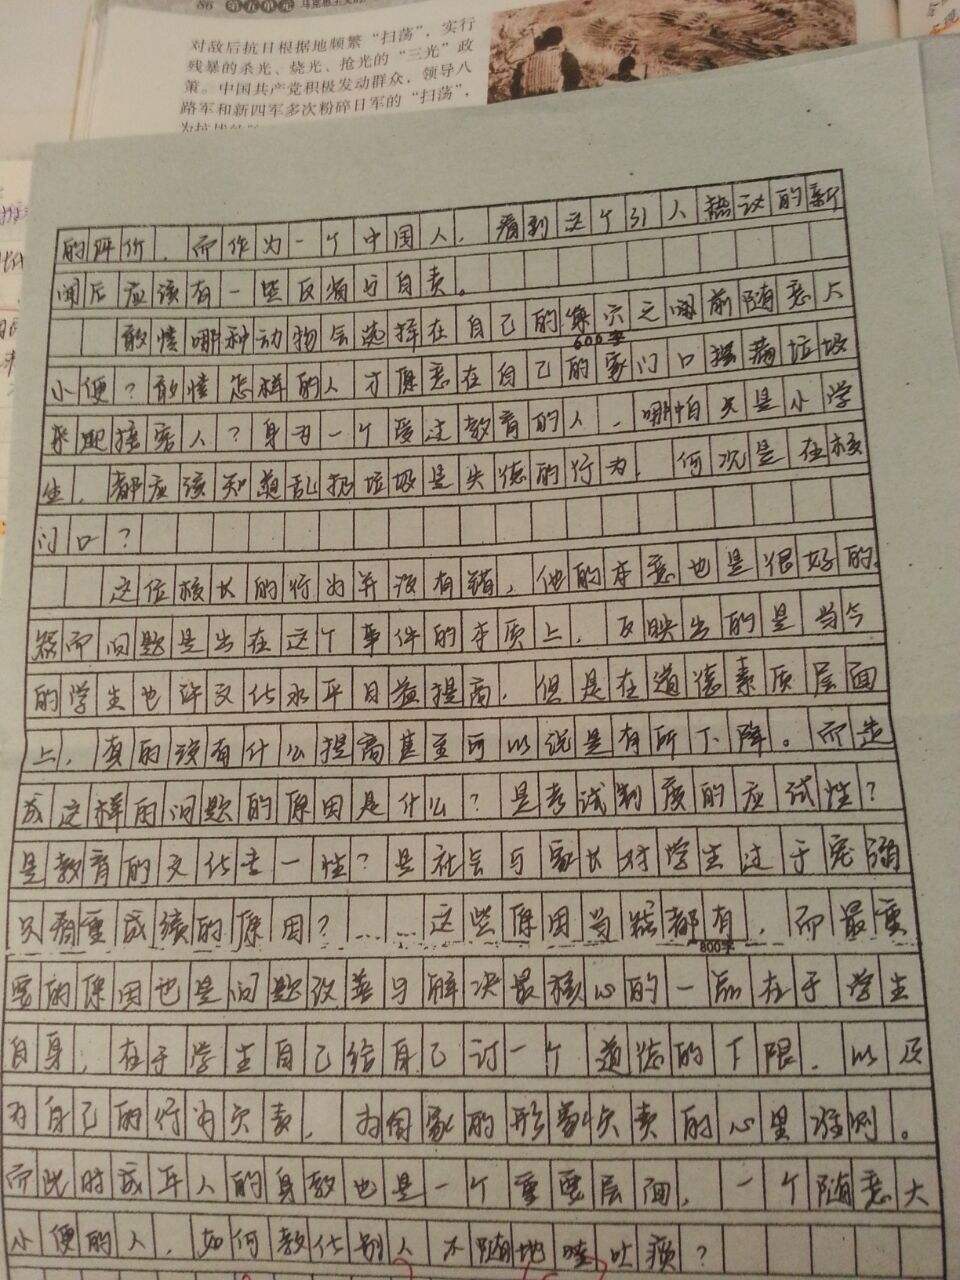 86 第五单元
对敌后抗日根据地频繁“扫荡”，实行
残暴的杀光、烧光、抢光的“三光”政
策。中国共产党积极发动群众，领导八
路军和新四军多次粉碎日军的“扫荡”，
的评价，而作为一个中国人，看到这个引人热议的新
闻后应该有一些反省与自责。
敢情哪种动物会选择在自己的巢穴之门前随意大
600字
小便？敢情怎样的人才愿意在自己的家门口撂满垃圾
来迎接客人？身为一个受过教育的人，哪怕只是小学
生，都应该知道乱扔垃圾是失德的行为，何况是在校
门口？
这位校长的行为并没有错，他的本意也是很好的，
然而问题是出在这个事件的本质上，反映出的是当今
的学生也许文化水平日益提高，但是在道德素质层面
上，真的没有什么提高甚至可以说是有所下降。而造
成这样的问题的原因是什么？是考试制度的应试性？
是教育的文化专一性？是社会与家长对学生过于宠溺
只看重成绩的原因？……这些原因当然都有，而最重
800字
要的原因也是问题改善与解决最核心的一点在于学生
自身，在于学生自己给自己订一个道德的下限，以及
为自己的行为负责，为国家的形象负责的心里准则。
而此时成年人的身教也是一个重要层面，一个随意大
小便的人，如何教化别人不随地吐痰？